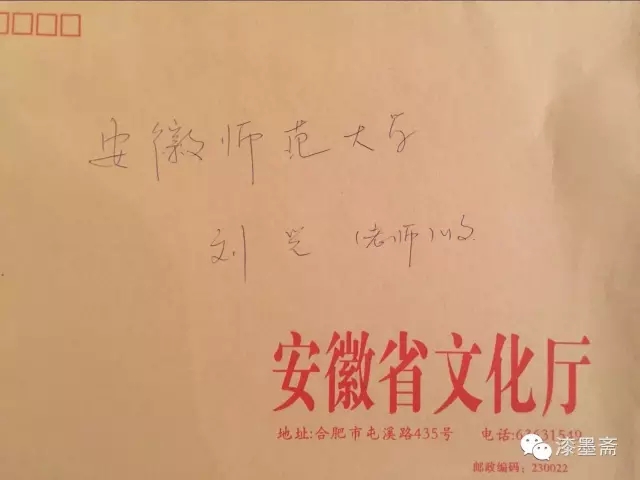 安徽师范大学
刘 (老师)收
安徽省文化厅
地址:合肥市屯溪路435号 电话:
漆墨斋
邮政编码:230022